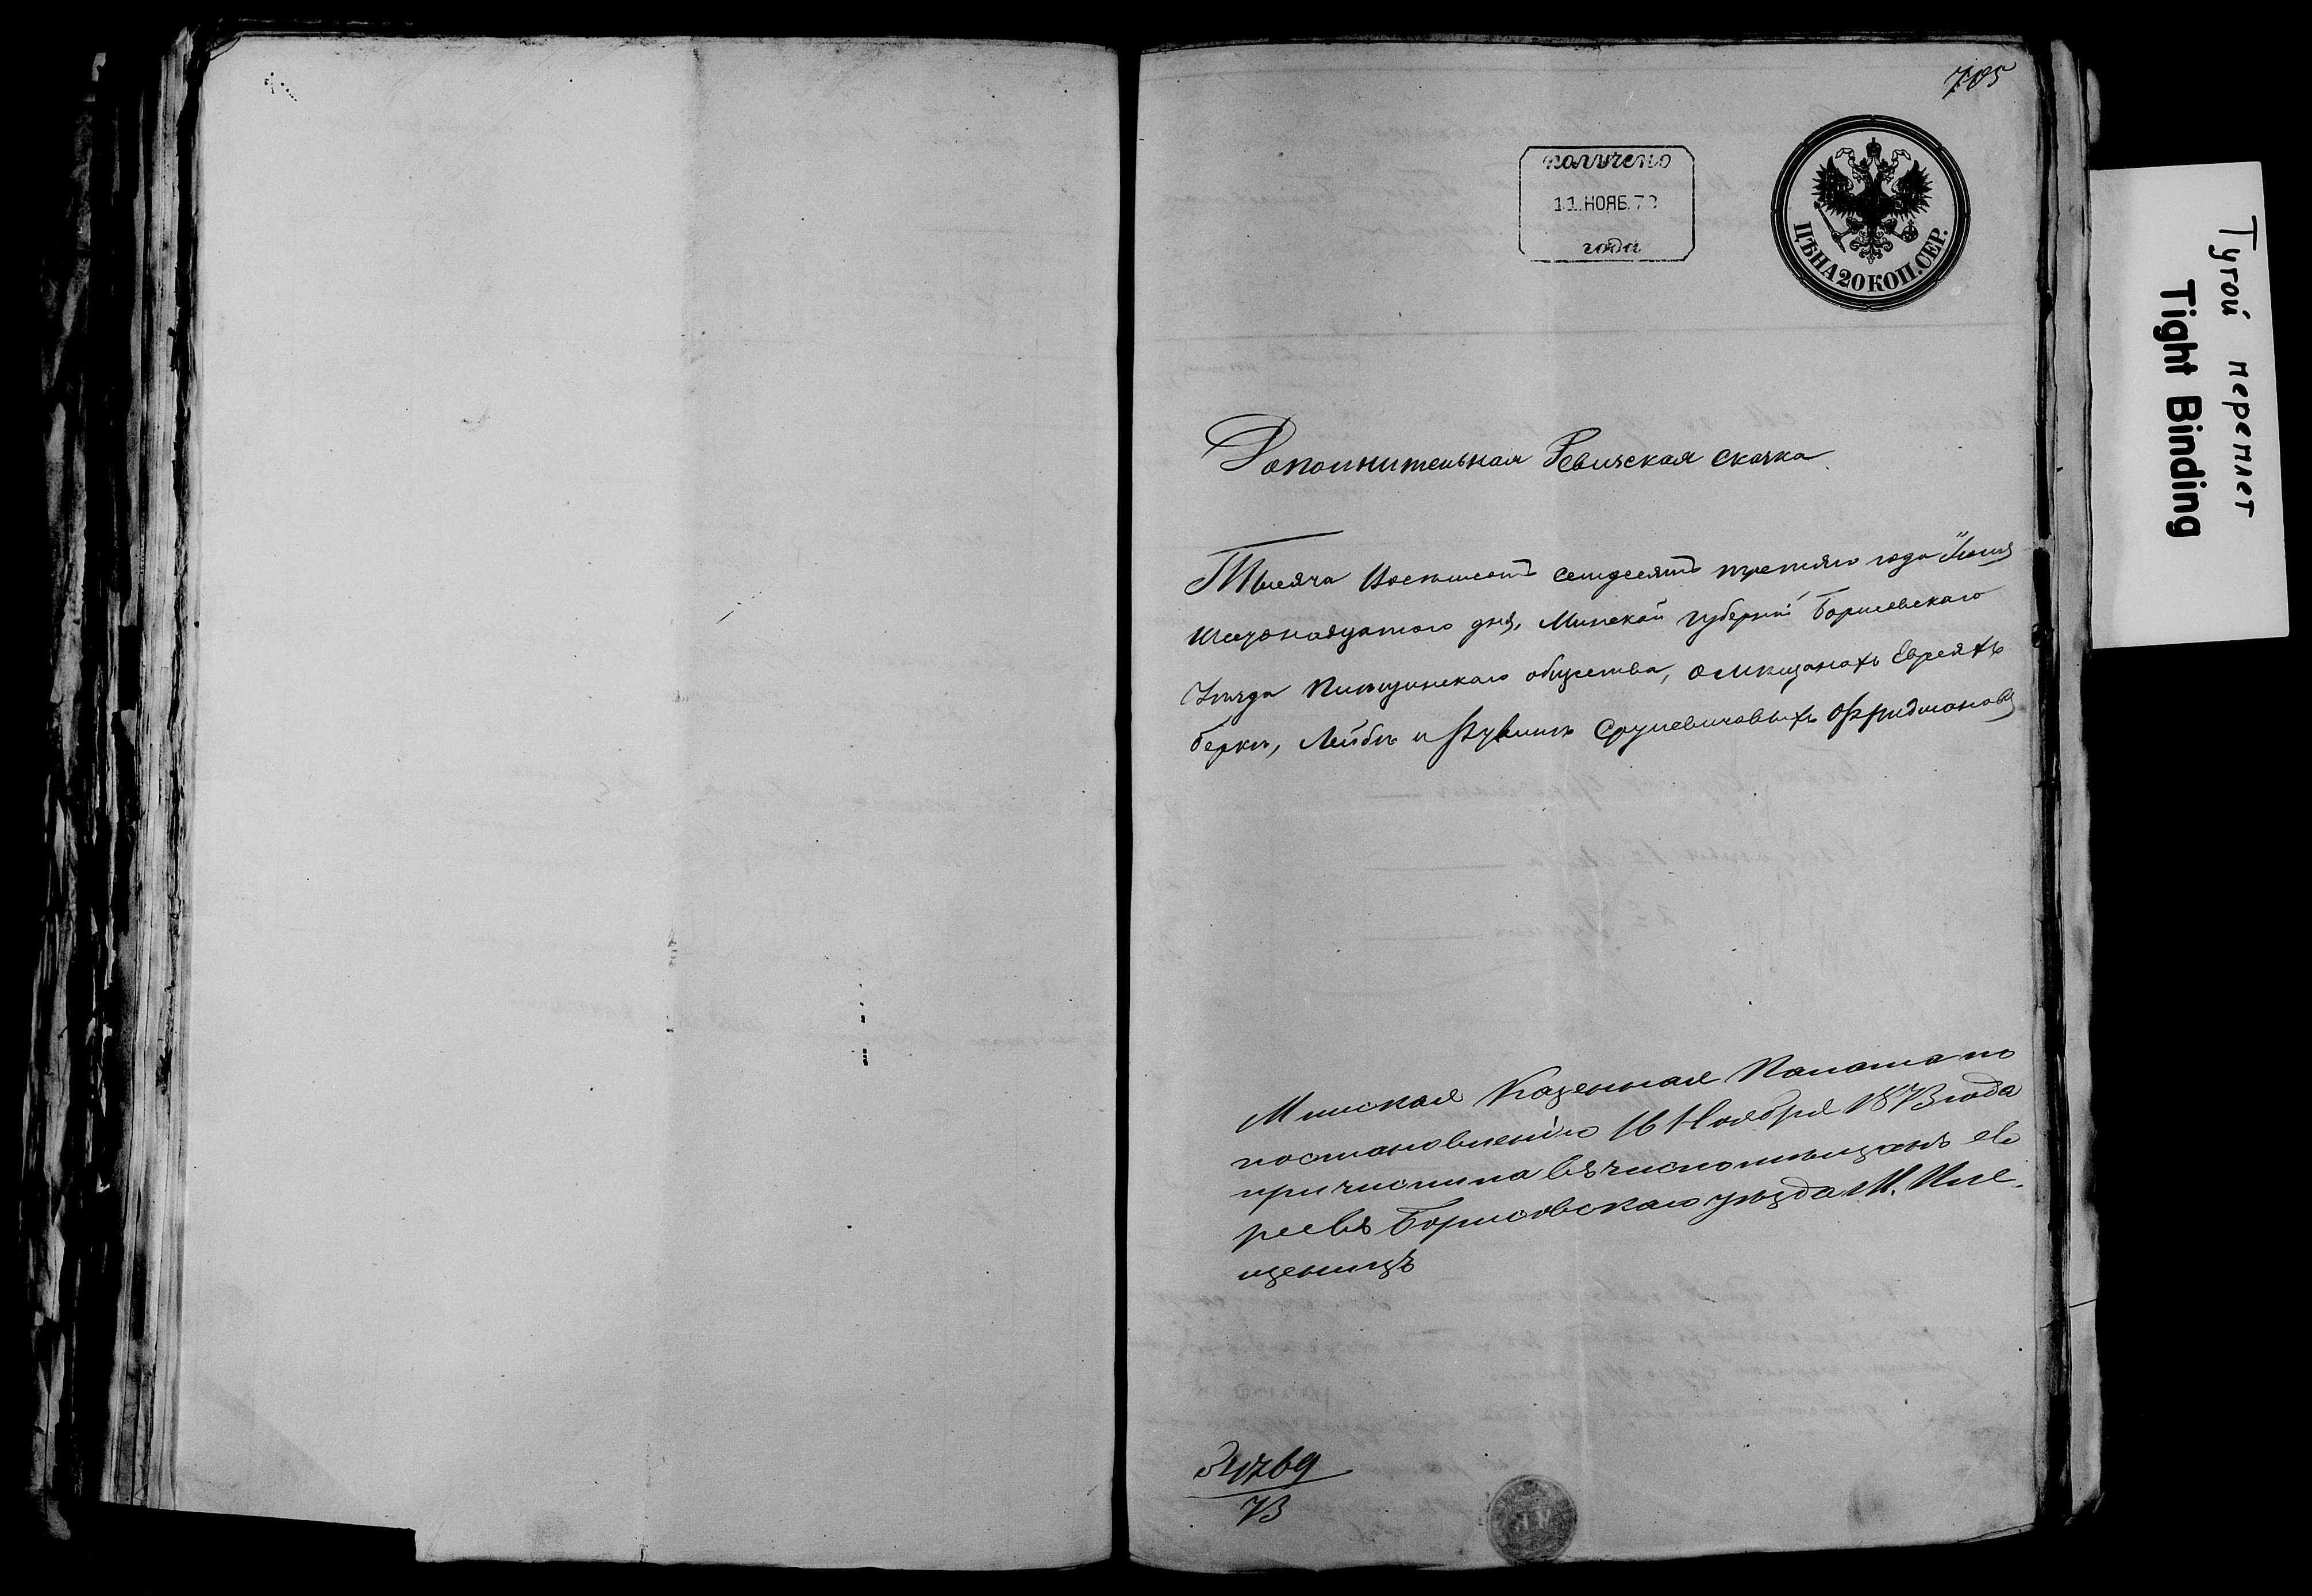 705
получено
11 НОЯБ. 73
года
ЦѢНА 20 КОП. СЕР.
Дополнительная Ревизская сказка
Тысяча Восемьсотъ семдесятъ третьяго года Июня
дня, Минской губерніи Борисовскаго
Уѣзда общества, о мѣщанахъ Евреяхъ
Беркѣ, Лейбѣ и Рувинѣ Срулевичовыхъ Фридманов
Минская Казенная Палата по
постановленію 16 Ноября 1873 года
причислила въ число мѣщанъ ев
реевъ Борисовскаго уѣзда М. Пле-
щеницъ
73
Тугой переплет
Tight Binding